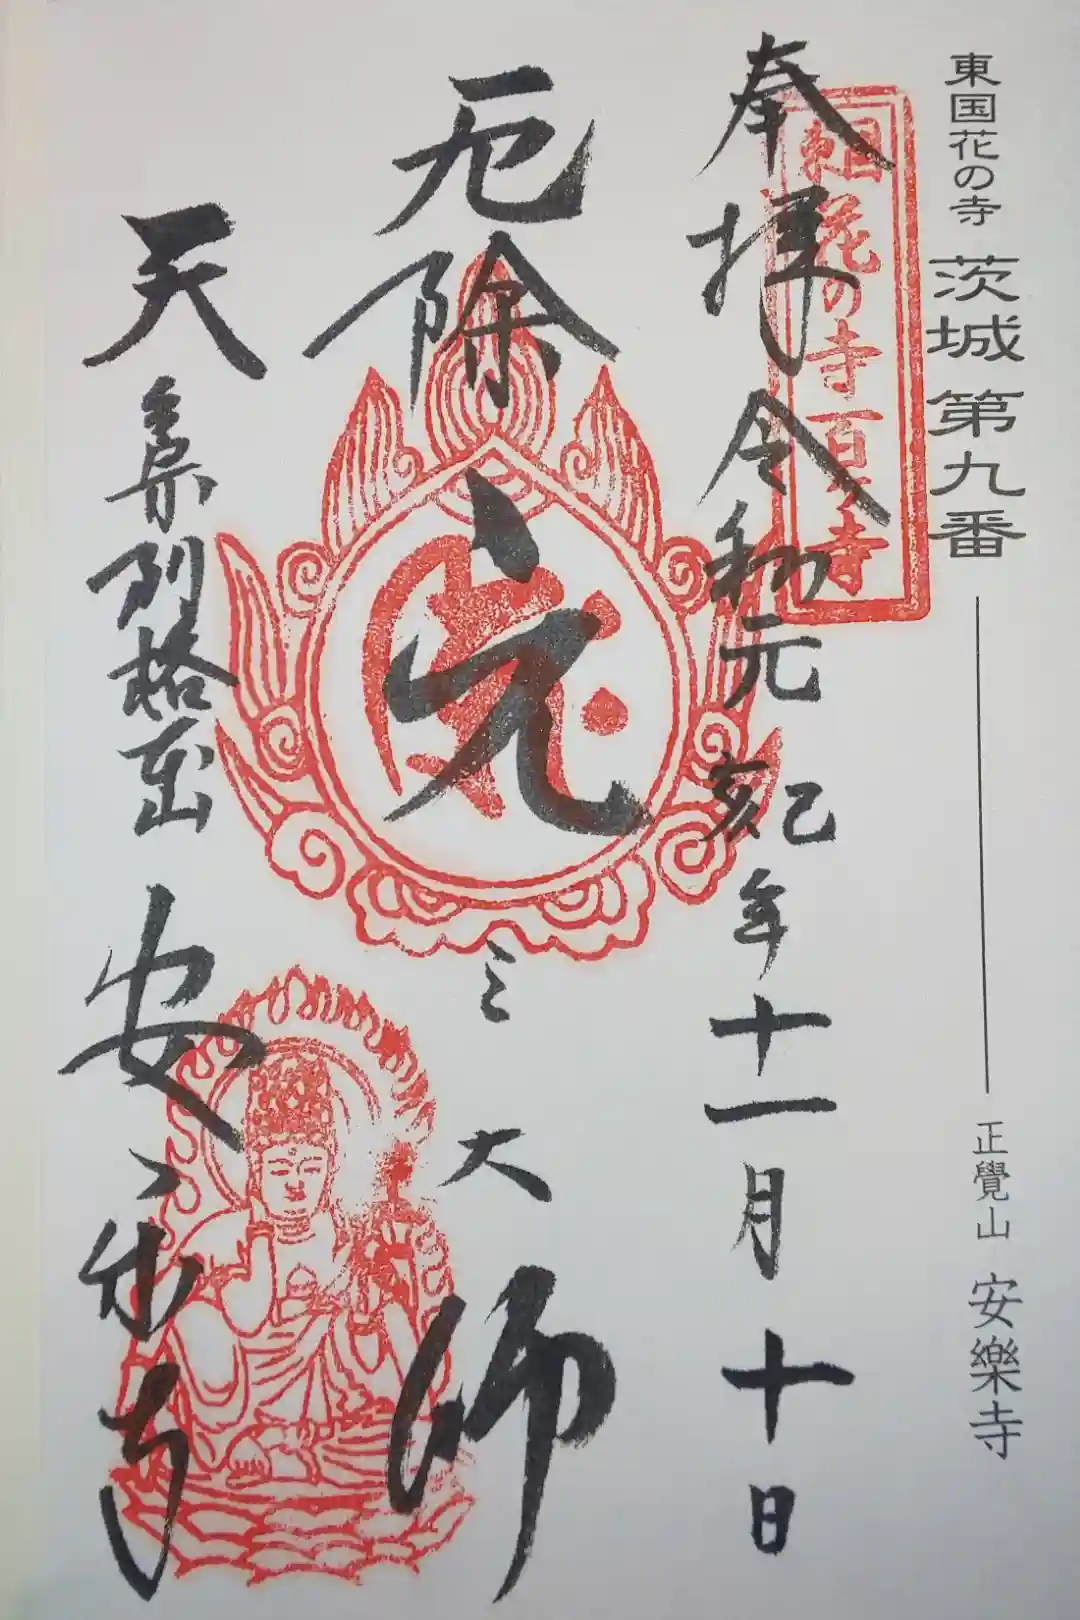 東国花の寺 茨城 第九番 正覺山 安樂寺
東国花の寺百ヶ寺
奉拝 令和元己亥年十一月十日
厄除 元三大師
天台宗別格本山 安楽寺